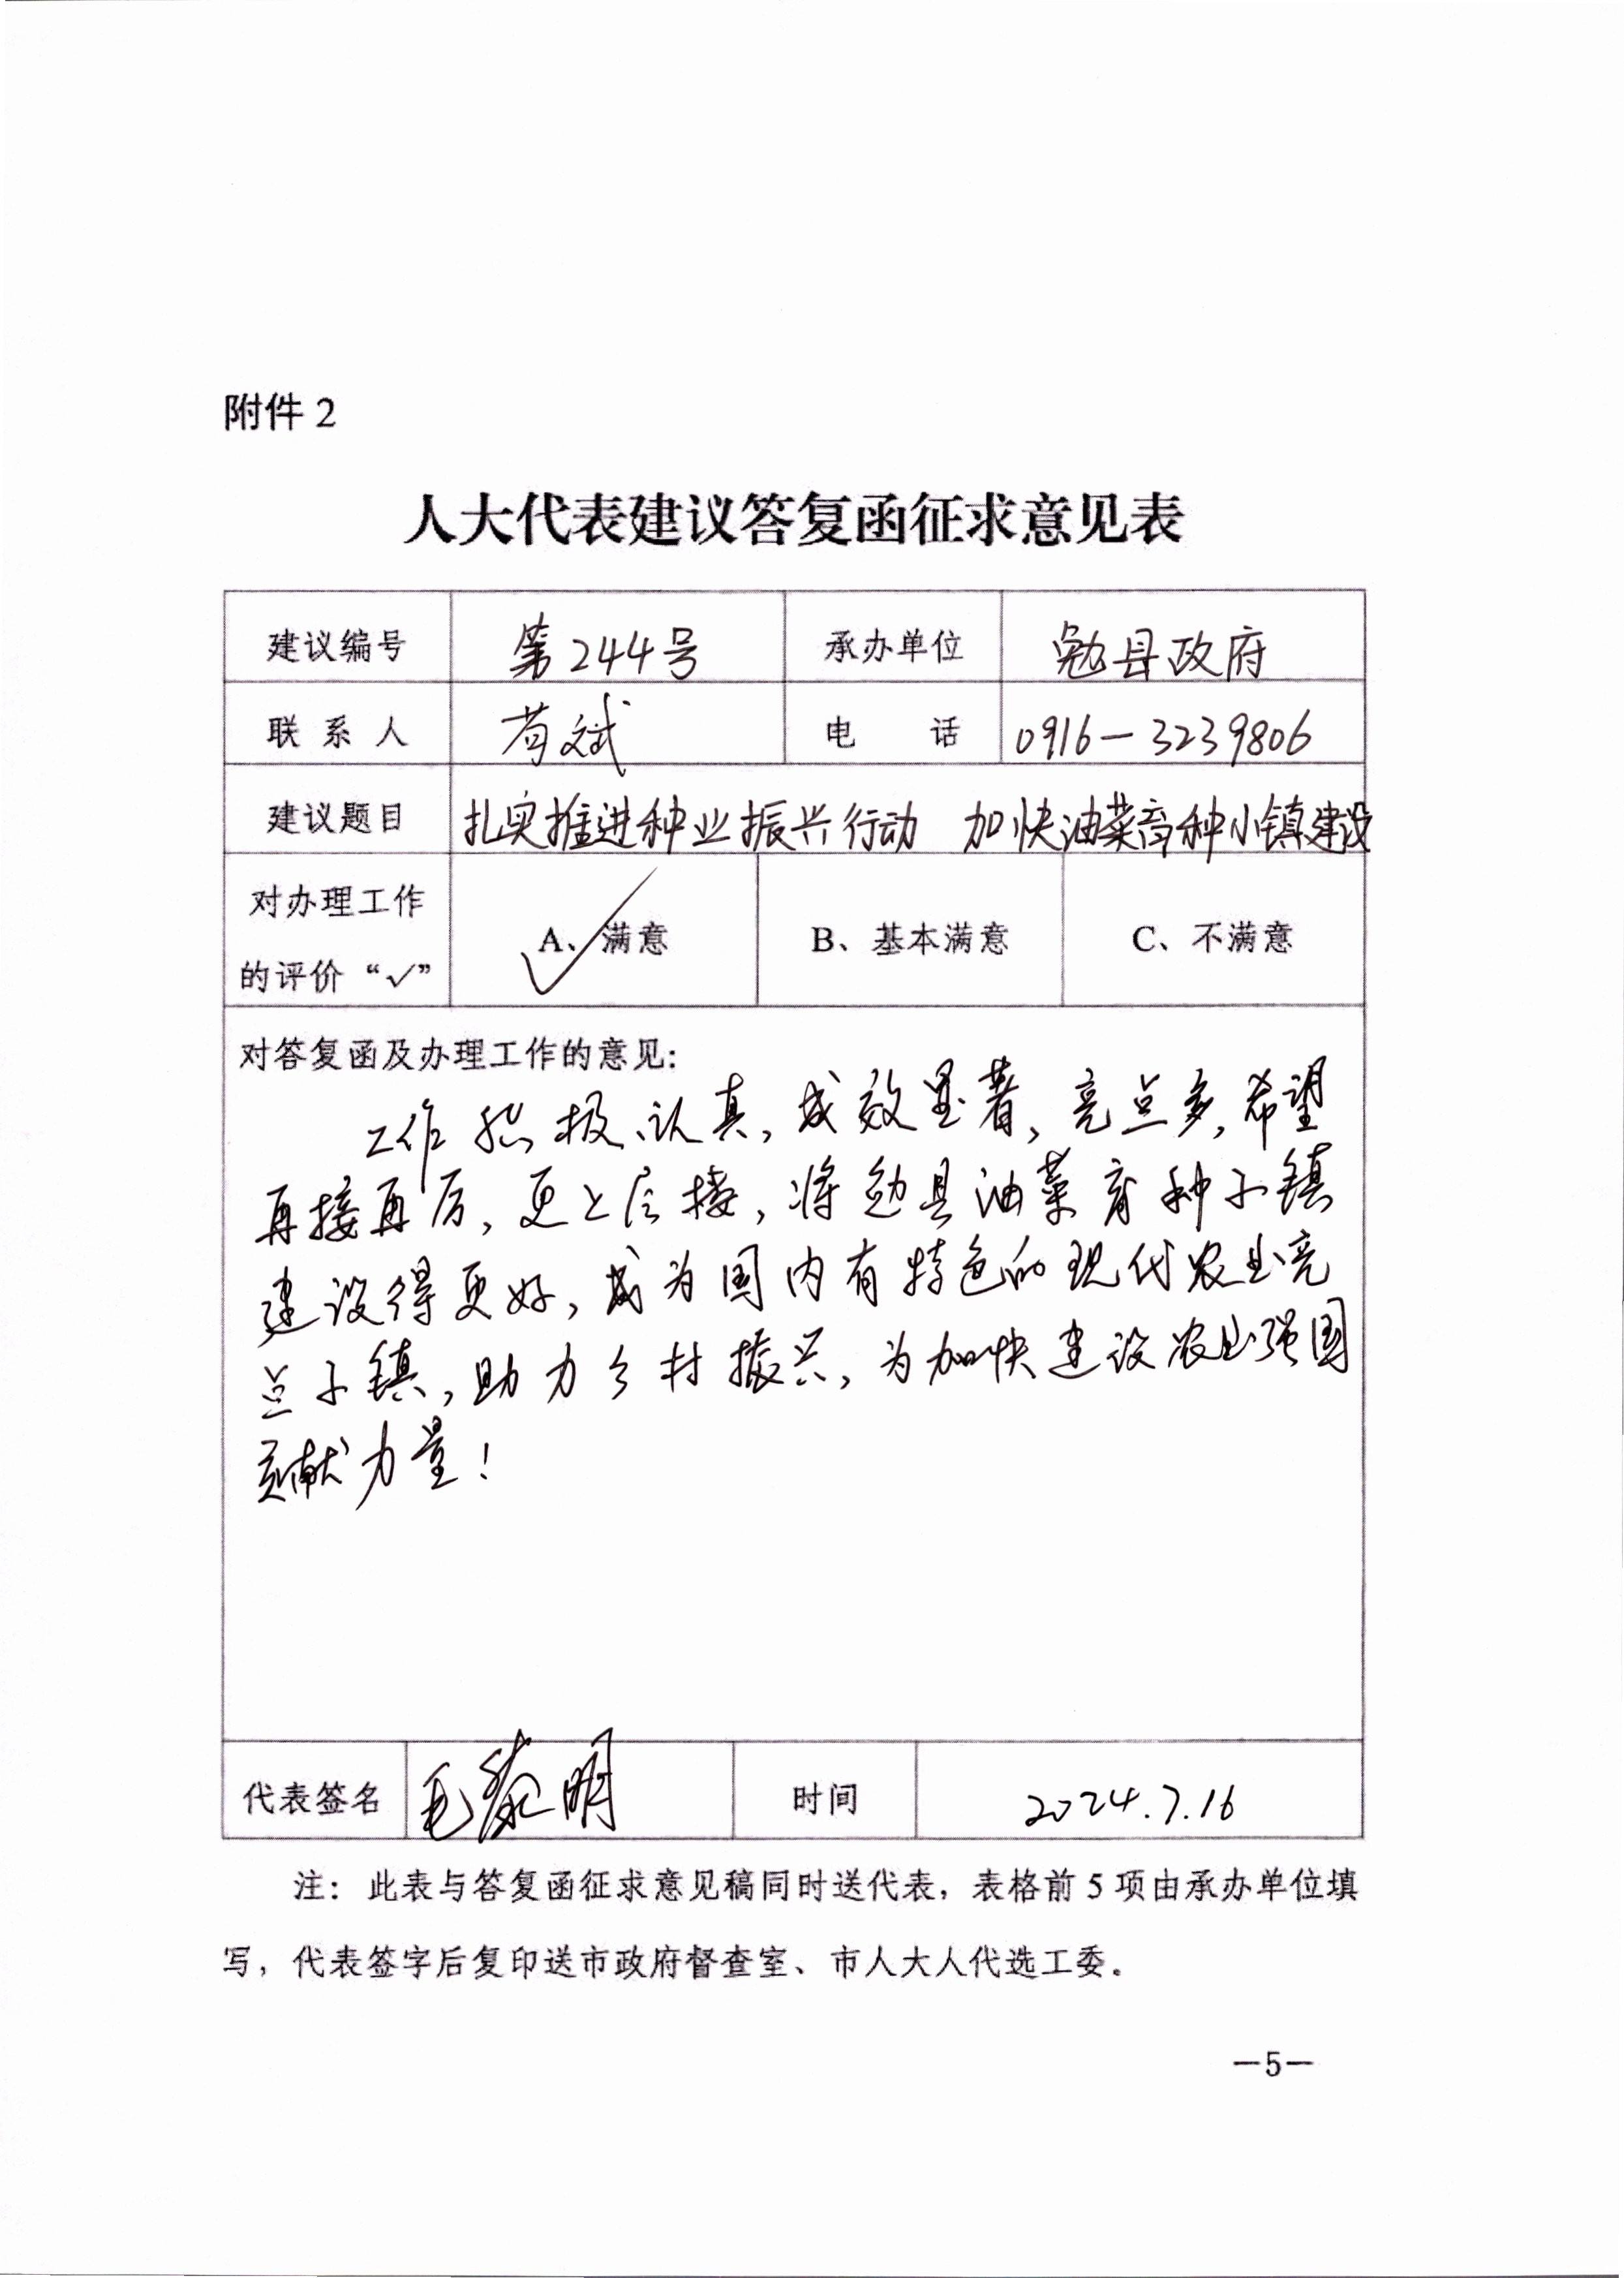 附件2
人大代表建议答复函征求意见表
建议编号 第244号 承办单位 勉县政府
联系人 苟斌 电话 0916-3239806
建议题目 扎实推进种业振兴行动 加快油菜育种小镇建设
对办理工作 A、满意 B、基本满意 C、不满意
的评价“✓”
对答复函及办理工作的意见:
工作积极、认真,成效显著,亮点多,希望
再接再厉,更上层楼,将勉县油菜育种小镇
建设得更好,成为国内有特色的现代农业亮
点小镇,助力乡村振兴,为加快建设农业强国
贡献力量!
代表签名 毛黎明 时间 2024.7.16
注:此表与答复函征求意见稿同时送代表,表格前5项由承办单位填
写,代表签字后复印送市政府督查室、市人大人代选工委。
—5—